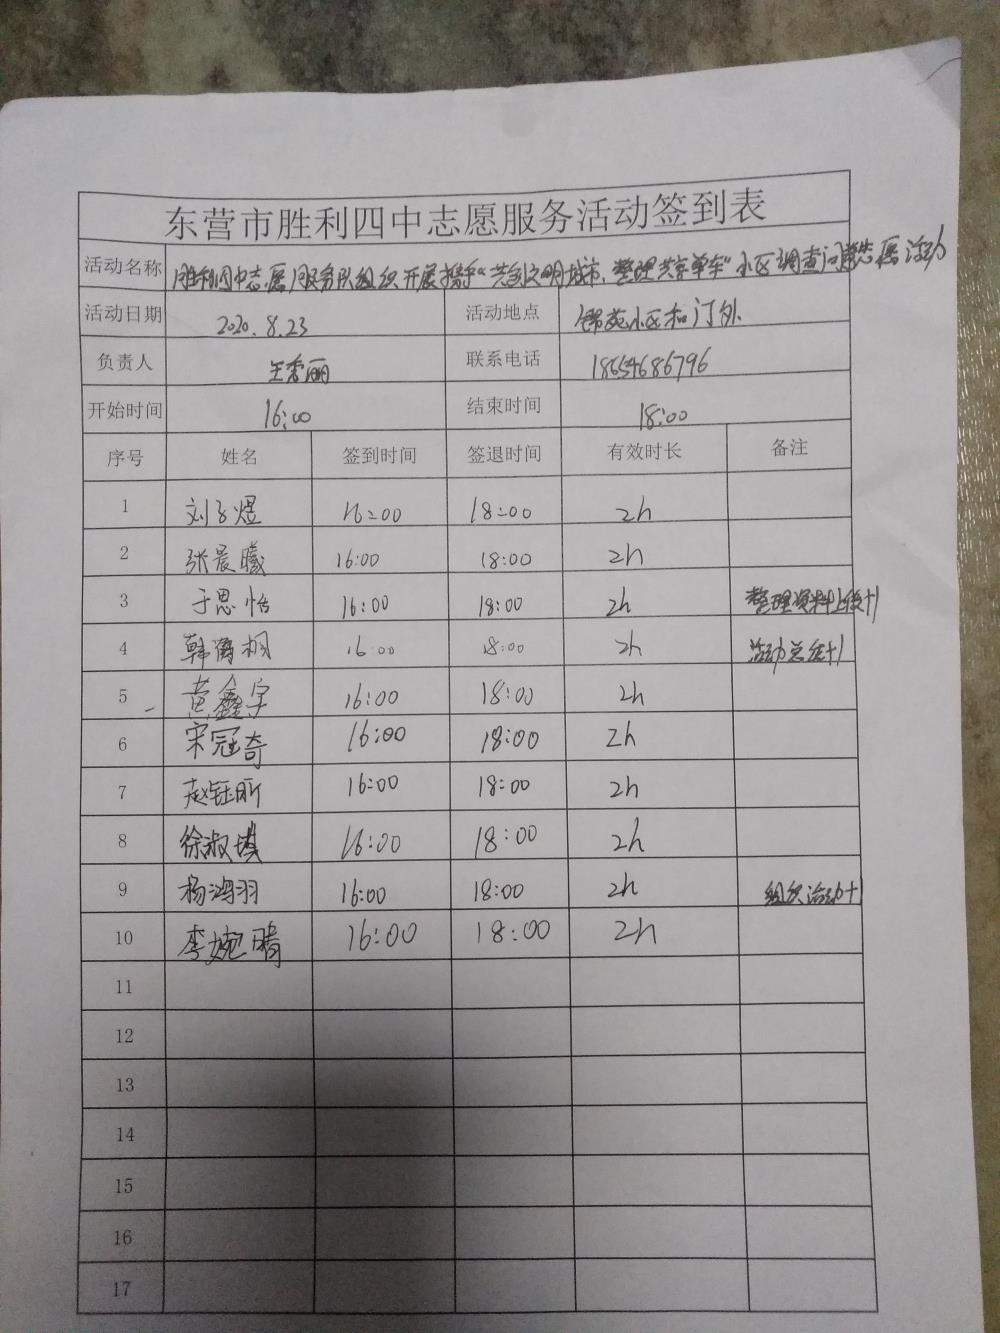 东营市胜利四中志愿服务活动签到表
活动名称 胜利四中志愿服务队组织开展携手“共创文明城市,整理共享单车”小区调查问卷志愿活动
活动日期 2020.8.23 活动地点 锦苑小区和门外
负责人 王秀丽 联系电话 18654686796
开始时间 16:00 结束时间 18:00
序号 姓名 签到时间 签退时间 有效时长 备注
1 刘子煜 16:00 18:00 2h
2 张晨曦 16:00 18:00 2h
3 于思怡 16:00 18:00 2h 整理资料上传+1
4 韩 桐 16:00 18:00 2h 活动总结+1
5 黄鑫宇 16:00 18:00 2h
6 宋冠奇 16:00 18:00 2h
7 赵钰昕 16:00 18:00 2h
8 徐淑琪 16:00 18:00 2h
9 杨鸿羽 16:00 18:00 2h 组织活动+1
10 李婉晴 16:00 18:00 2h
11
12
13
14
15
16
17